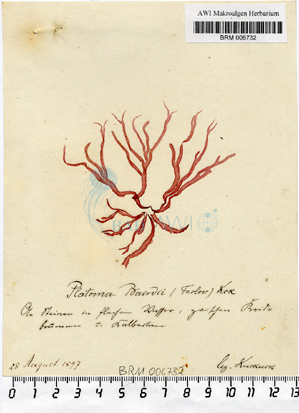 AWI Makroalgen Herbarium
BRM 006732
Platoma Bairdii (Farlow) Kck
An Steinen in flachem Wasser, zwischen
28 August 1897
BRM 006732
leg. Kuckuck
0 1 2 3 4 5 6 7 8 9 10 11 12 13